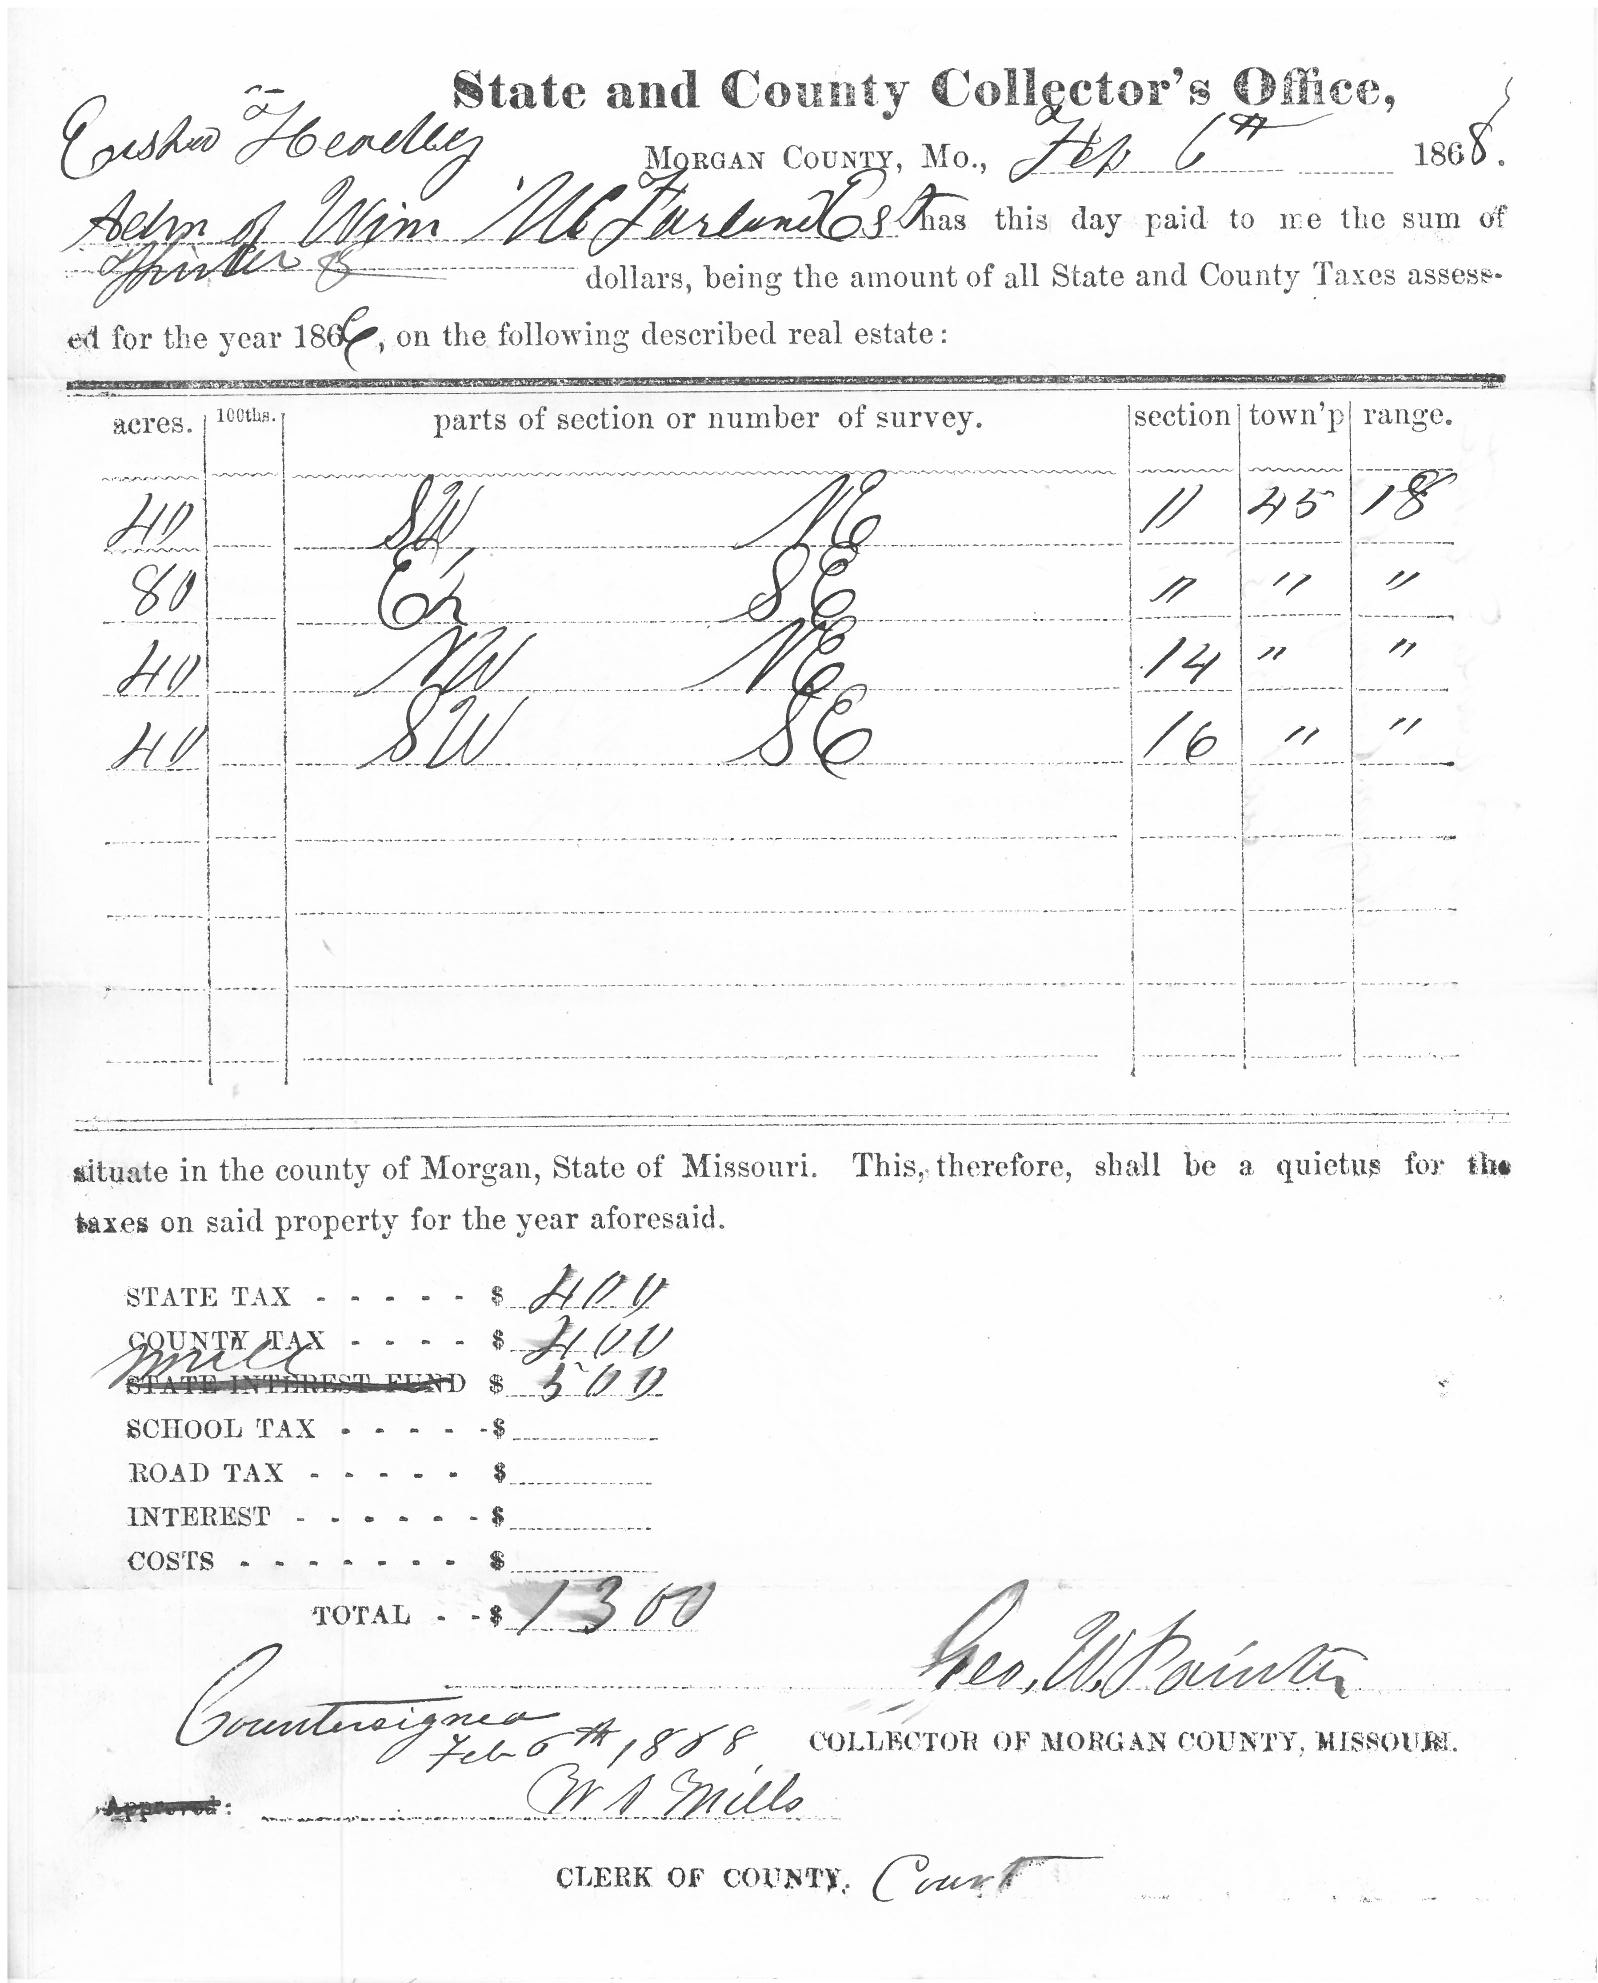 State and County Collector's Office,
Headley MORGAN COUNTY, Mo., Feb 6th 1868.
Adm of Wim McFarland Est has this day paid to me the sum of
dollars, being the amount of all State and County Taxes assess-
ed for the year 1866, on the following described real estate:
acres. 100ths. parts of section or number of survey. section town'p range.
40 SW, NE 11 45 18
80 E½ SE " " "
40 NW NE 14 " "
40 SW SE 16 " "
situate in the county of Morgan, State of Missouri. This, therefore, shall be a quietus for the
taxes on said property for the year aforesaid.
STATE TAX - - - - - $ 400
COUNTY TAX - - - - $ 400
mill
STATE INTEREST FUND $ 500
SCHOOL TAX - - - - - $
ROAD TAX - - - - - $
INTEREST - - - - - - $
COSTS - - - - - - - $
TOTAL - - $ 1300
Geo. W. Painter
Countersigned
Feb 6th, 1868 COLLECTOR OF MORGAN COUNTY, MISSOURI.
W S Mills
Approved:
CLERK OF COUNTY, Court